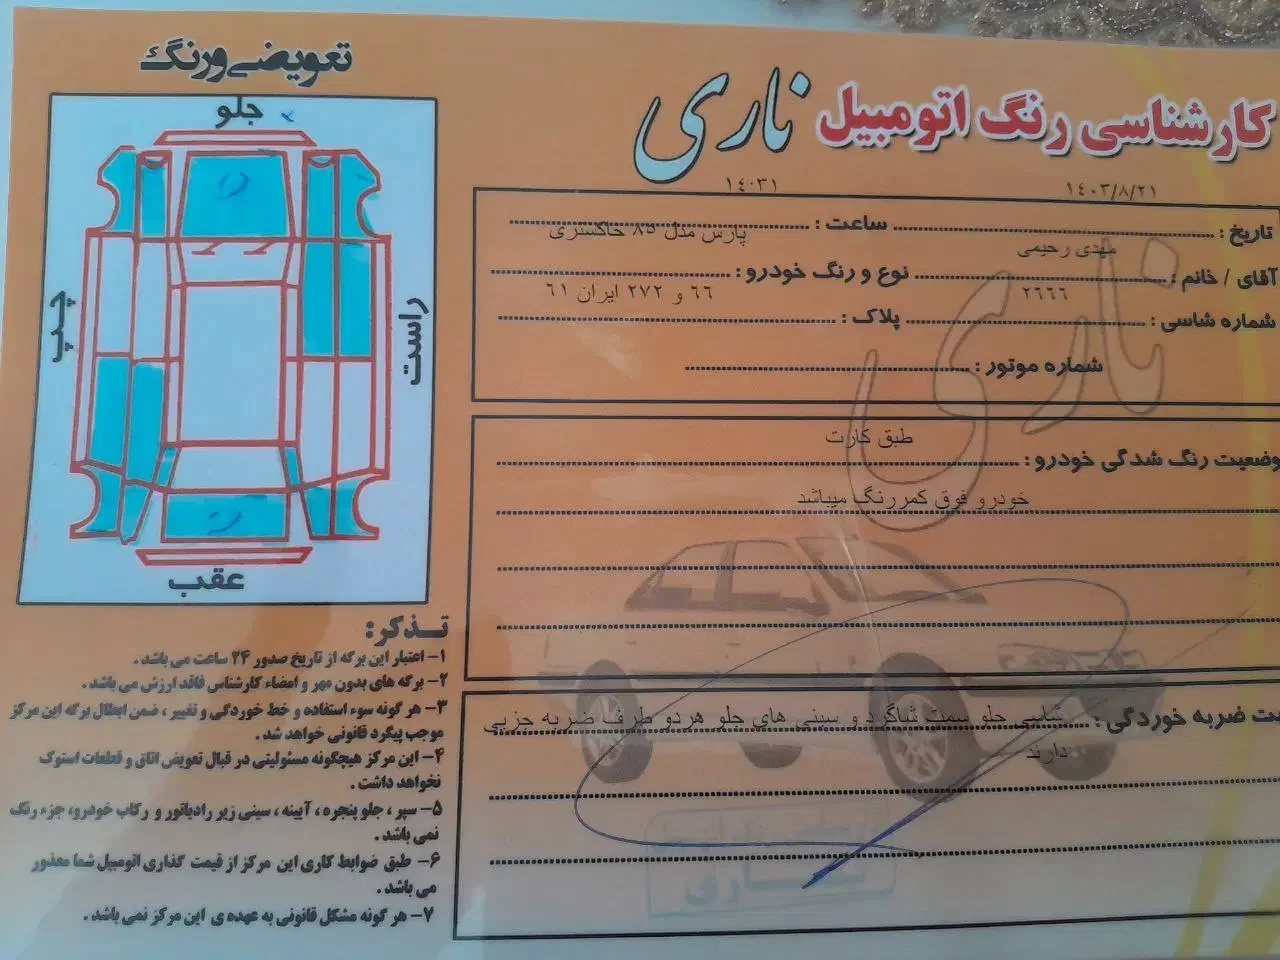 کارشناسی رنگ اتومبیل ناری
۱۴۰۳/۸/۲۱
۱٤۰۳۱
تاریخ : ساعت :
مهدی رحیمی
پارس مدل ۸۵ خاکستری
آقای / خانم : نوع و رنگ خودرو :
۲٦٦٦
٦٦ و ۲۷۲ ایران ٦۱
شماره شاسی : پلاک :
شماره موتور :
طبق کارت
وضعیت رنگ شدگی خودرو :
خودرو فوق کمررنگ میباشد
ت ضربه خوردگی : شاسی جلو سمت شاگرد و سینی های جلو هردو طرف ضربه جزیی
دارند
ناری
تعویضی و رنگ
جلو
چپ
راست
عقب
تـذکر:
۱- اعتبار این برگه از تاریخ صدور ۲۴ ساعت می باشد .
۲- برگه های بدون مهر و امضاء کارشناس فاقد ارزش می باشد .
۳- هر گونه سوء استفاده و خط خوردگی و تغییر ، ضمن ابطال برگه این مرکز
موجب پیگرد قانونی خواهد شد .
۴- این مرکز هیچگونه مسئولیتی در قبال تعویض اتاق و قطعات استوک
نخواهد داشت .
۵- سپر ، جلو پنجره ، آیینه ، سینی زیر رادیاتور و رکاب خودرو، جزء رنگ
نمی باشد .
۶- طبق ضوابط کاری این مرکز از قیمت گذاری اتومبیل شما معذور
می باشد .
۷- هر گونه مشکل قانونی به عهده ی این مرکز نمی باشد .